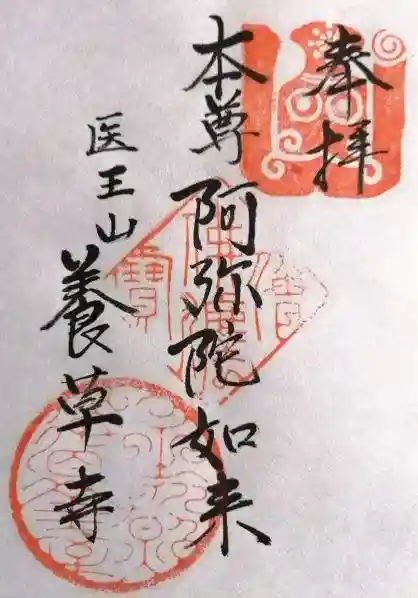 奉拝
本尊 阿弥陀如来
医王山 養草寺